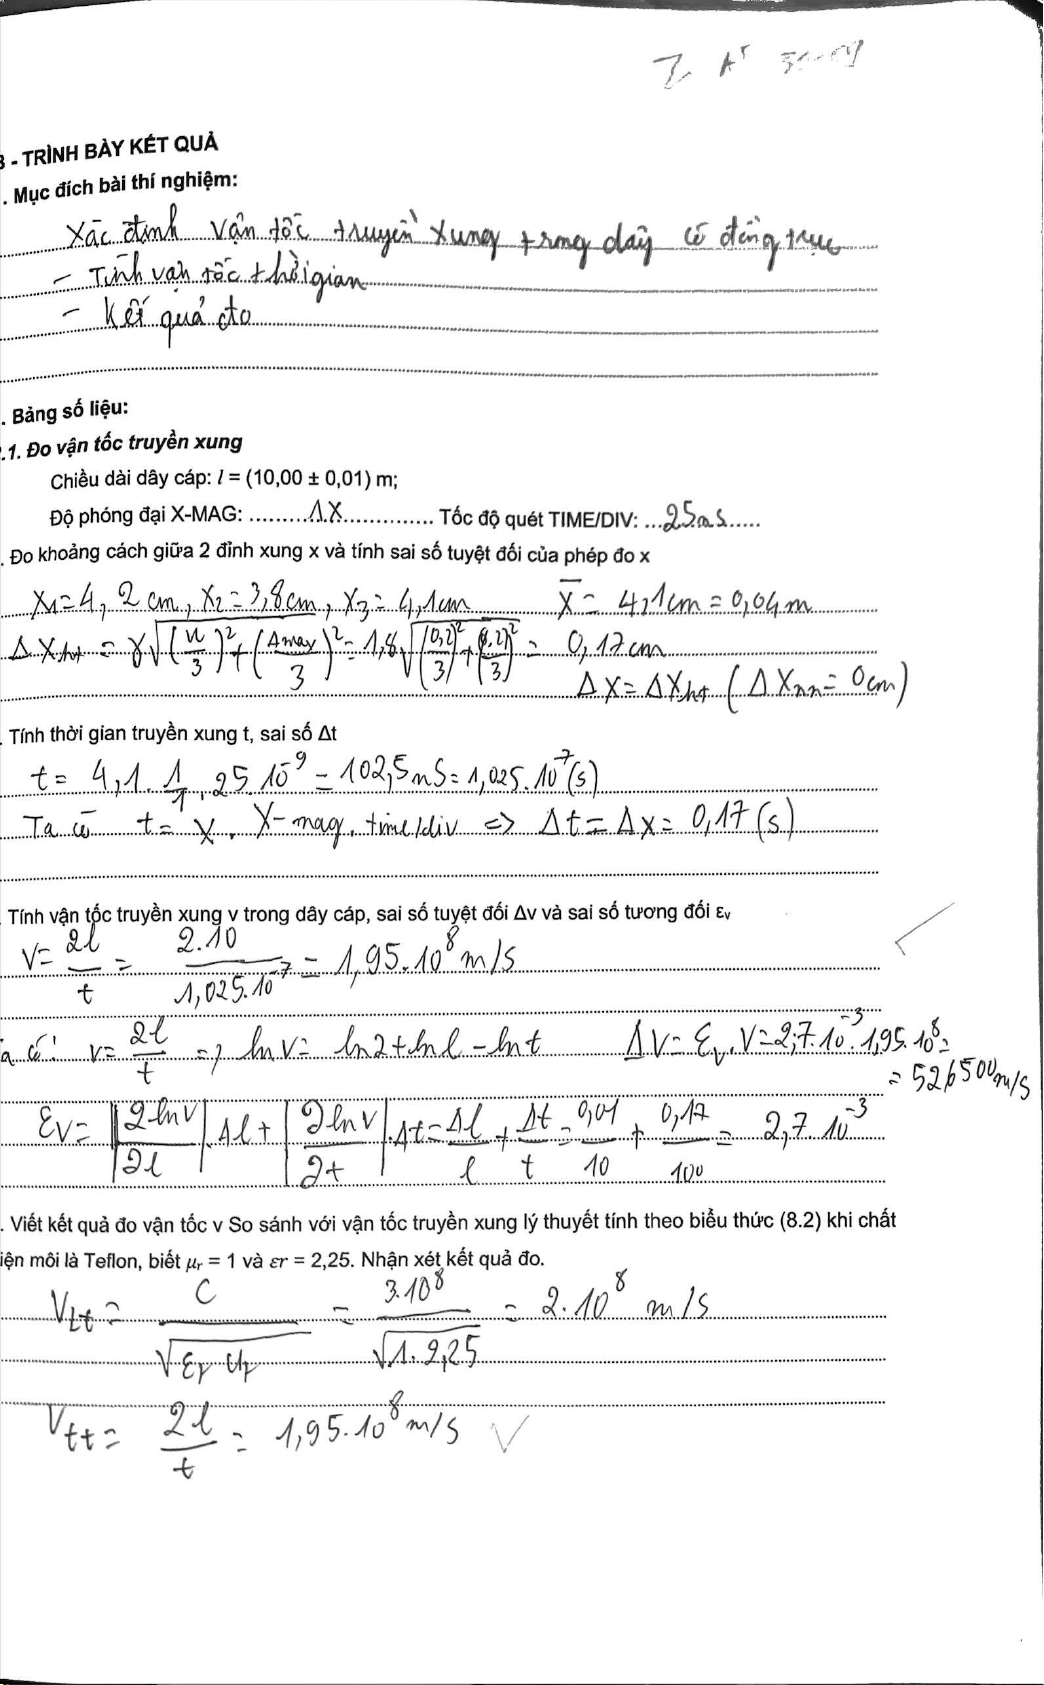 - TRÌNH BÀY KẾT QUẢ
. Mục đích bài thí nghiệm:
Xác định vận tốc truyền xung trong dây có đồng trục
- Tính vận tốc thời gian
- Kết quả đo
. Bảng số liệu:
.1. Đo vận tốc truyền xung
Chiều dài dây cáp: l = (10,00 ± 0,01) m;
Độ phóng đại X-MAG: ......1.X.............. Tốc độ quét TIME/DIV: ...25ns.....
. Đo khoảng cách giữa 2 đỉnh xung x và tính sai số tuyệt đối của phép đo x
x1=4,2cm, x2=3,8cm, x3=4,1cm x̄=4,1cm=0,04m
Δxht = γ√((u/3)²+(Δmax/3)²) = 1,8√((0,2/3)²+(0,2/3)²) = 0,17cm
Δx=Δxht (Δxnn=0cm)
. Tính thời gian truyền xung t, sai số Δt
t= 4,1.1/1.25.10⁻⁹=102,5nS=1,025.10⁻⁷(s)
Ta có t= x. X-mag. time/div => Δt=Δx=0,17(s)
. Tính vận tốc truyền xung v trong dây cáp, sai số tuyệt đối Δv và sai số tương đối εv
V= 2l/t = 2.10/1,025.10⁻⁷ = 1,95.10⁸ m/s
a có: v= 2l/t => lnV= ln2+lnl-lnt ΔV=εv.V=2,7.10⁻³.1,95.10⁸=
= 526500m/s
εv= |∂lnV/∂l|.Δl+|∂lnV/∂t|.Δt=Δl/l+Δt/t=0,01/10+0,17/100=2,7.10⁻³
. Viết kết quả đo vận tốc v So sánh với vận tốc truyền xung lý thuyết tính theo biểu thức (8.2) khi chất
iện môi là Teflon, biết μr = 1 và εr = 2,25. Nhận xét kết quả đo.
Vlt= C/√εr μr = 3.10⁸/√1.2,25 = 2.10⁸ m/s
Vtt= 2l/t = 1,95.10⁸ m/s